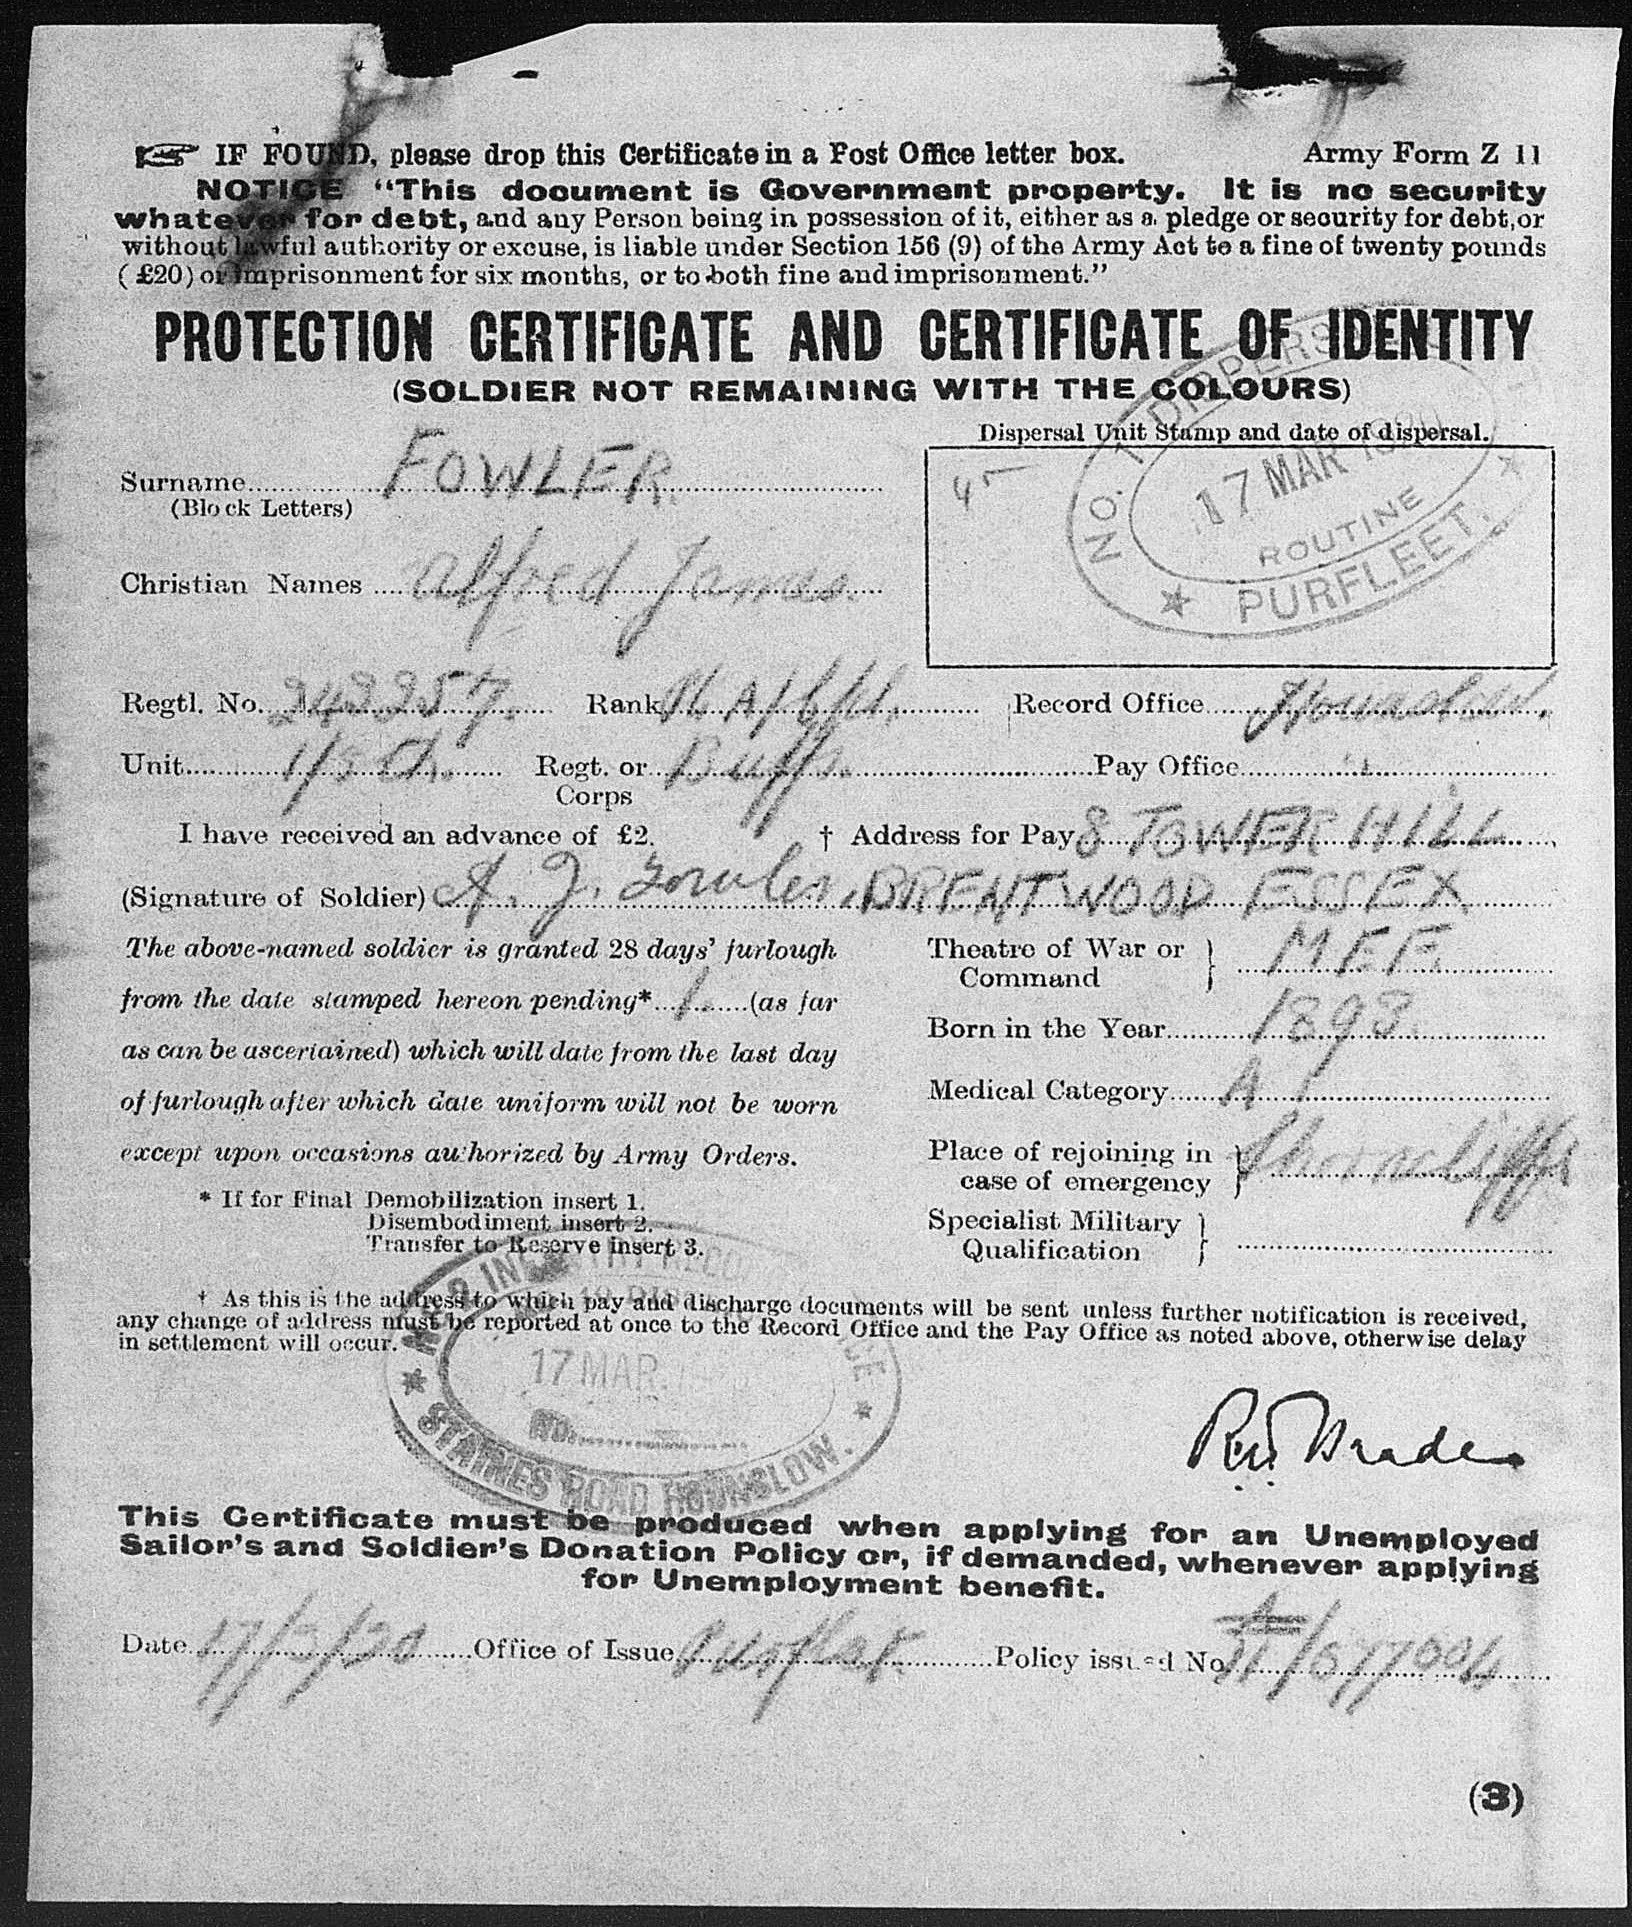 ☞ IF FOUND, please drop this Certificate in a Post Office letter box. Army Form Z 11
NOTICE "This document is Government property. It is no security
whatever for debt, and any Person being in possession of it, either as a pledge or security for debt, or
without lawful authority or excuse, is liable under Section 156 (9) of the Army Act to a fine of twenty pounds
(£20) or imprisonment for six months, or to both fine and imprisonment."
PROTECTION CERTIFICATE AND CERTIFICATE OF IDENTITY
(SOLDIER NOT REMAINING WITH THE COLOURS)
Dispersal Unit Stamp and date of dispersal.
NO. 1 DISPERSAL
17 MAR 1920
ROUTINE
PURFLEET.
Surname FOWLER.
(Block Letters)
Christian Names Alfred James.
Regtl. No. 243257. Rank Record Office Hounslow.
Unit 1/5th. Regt. or Buffs. Pay Office "
Corps
I have received an advance of £2. † Address for Pay 8 TOWER HILL
(Signature of Soldier) A. J. Fowler. BRENTWOOD ESSEX.
The above-named soldier is granted 28 days' furlough
from the date stamped hereon pending* 1. (as far
as can be ascertained) which will date from the last day
of furlough after which date uniform will not be worn
except upon occasions authorized by Army Orders.
* If for Final Demobilization insert 1.
Disembodiment insert 2.
Transfer to Reserve insert 3.
Theatre of War or M.E.F.
Command
Born in the Year 1898.
Medical Category A 1
Place of rejoining in Shorncliffe
case of emergency
Specialist Military
Qualification
† As this is the address to which pay and discharge documents will be sent unless further notification is received,
any change of address must be reported at once to the Record Office and the Pay Office as noted above, otherwise delay
in settlement will occur.
No. 2 INFANTRY RECORD OFFICE
17 MAR.
No.
STAINES ROAD HOUNSLOW.
This Certificate must be produced when applying for an Unemployed
Sailor's and Soldier's Donation Policy or, if demanded, whenever applying
for Unemployment benefit.
Date 17/3/20 Office of Issue Purfleet. Policy issued No.
(3)